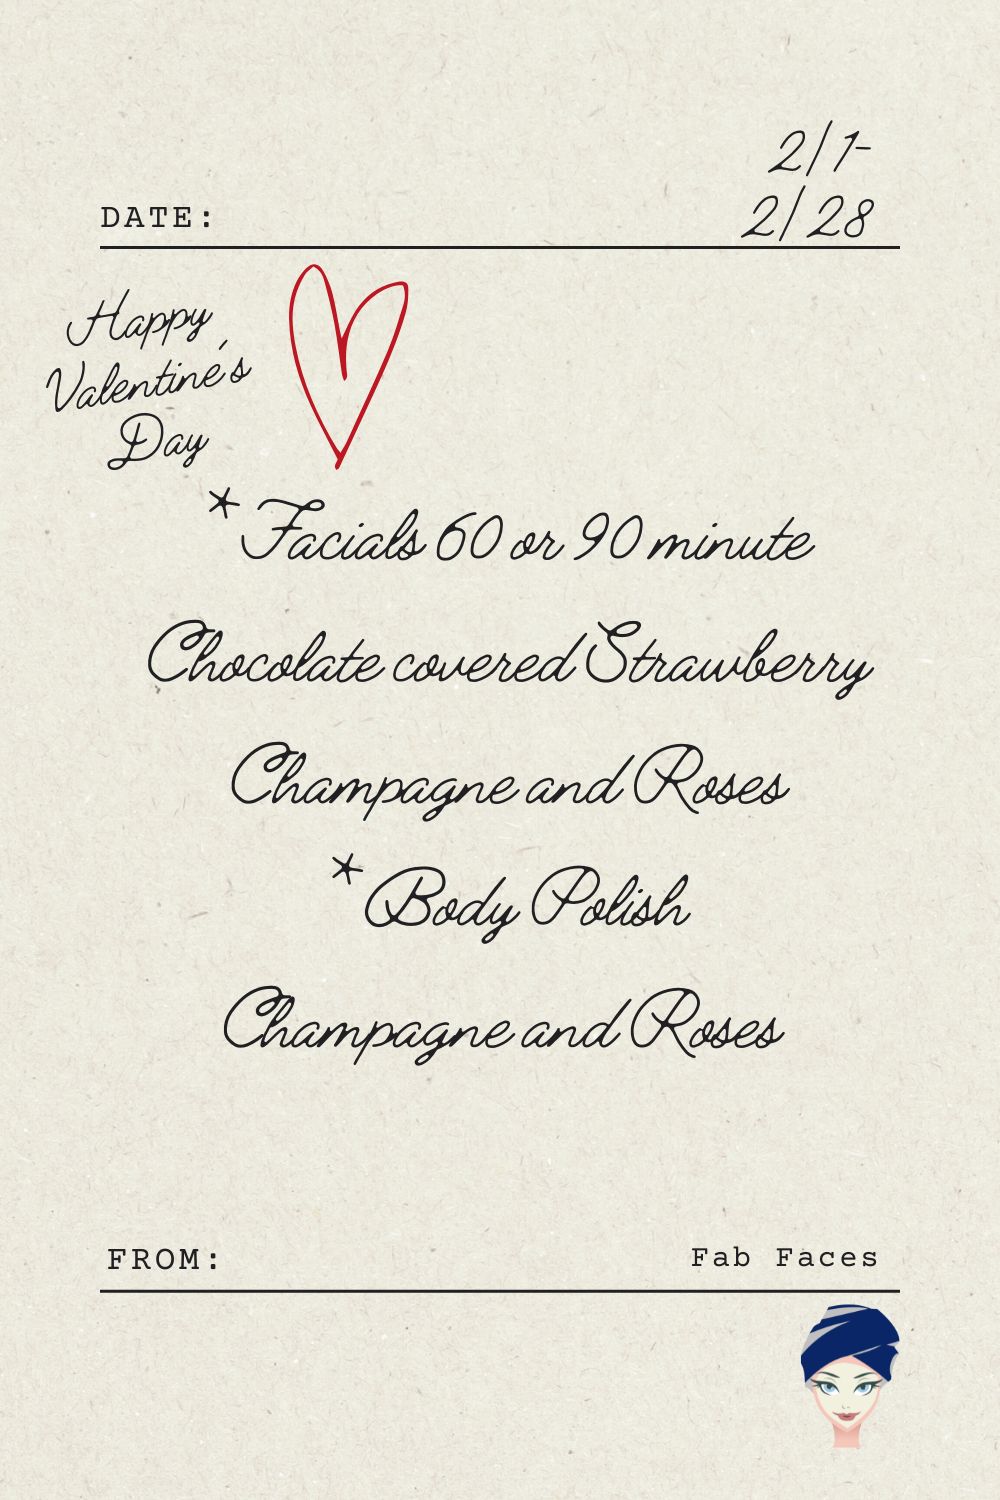 2/1-
DATE: 2/28
Happy
Valentine's
Day
*Facials 60 or 90 minute
Chocolate covered Strawberry
Champagne and Roses
*Body Polish
Champagne and Roses
FROM: Fab Faces